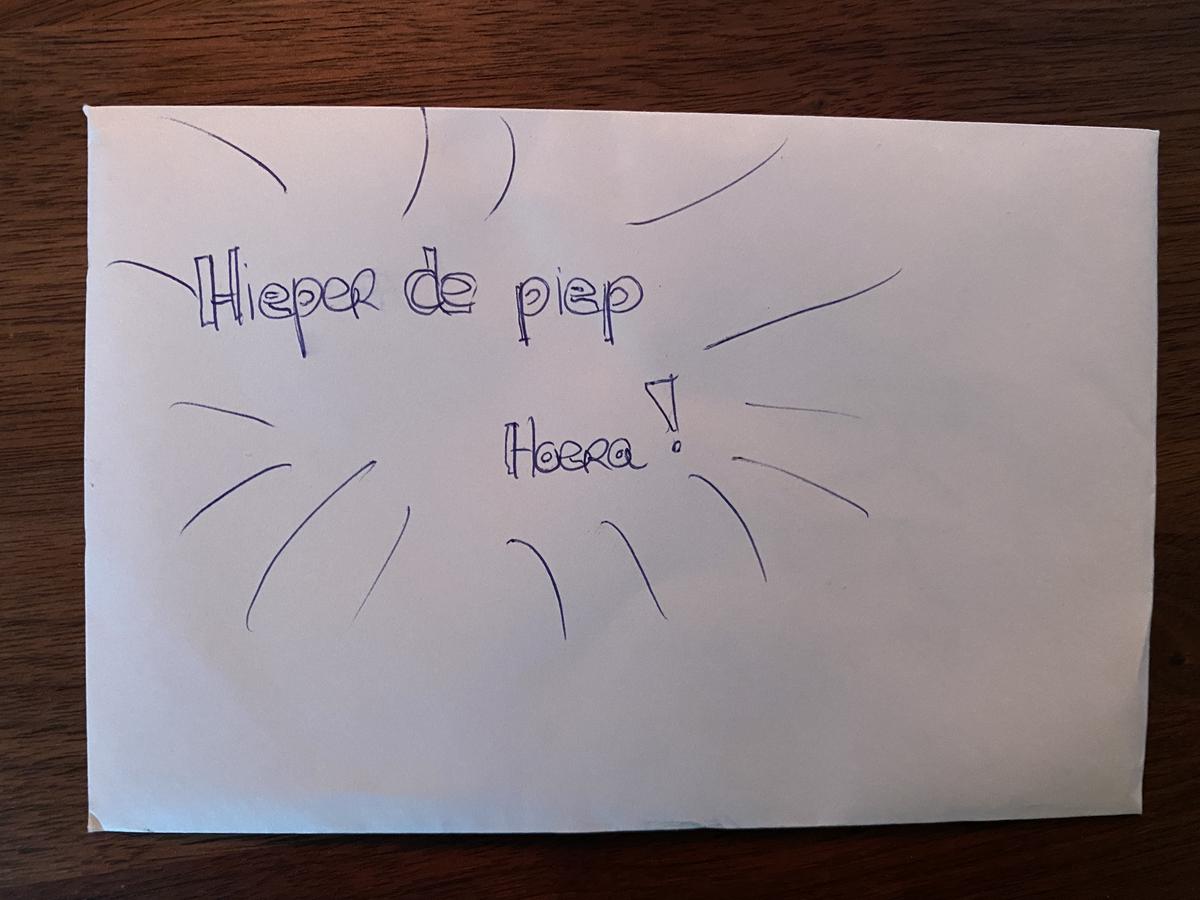 Hieper de piep
Hoera!